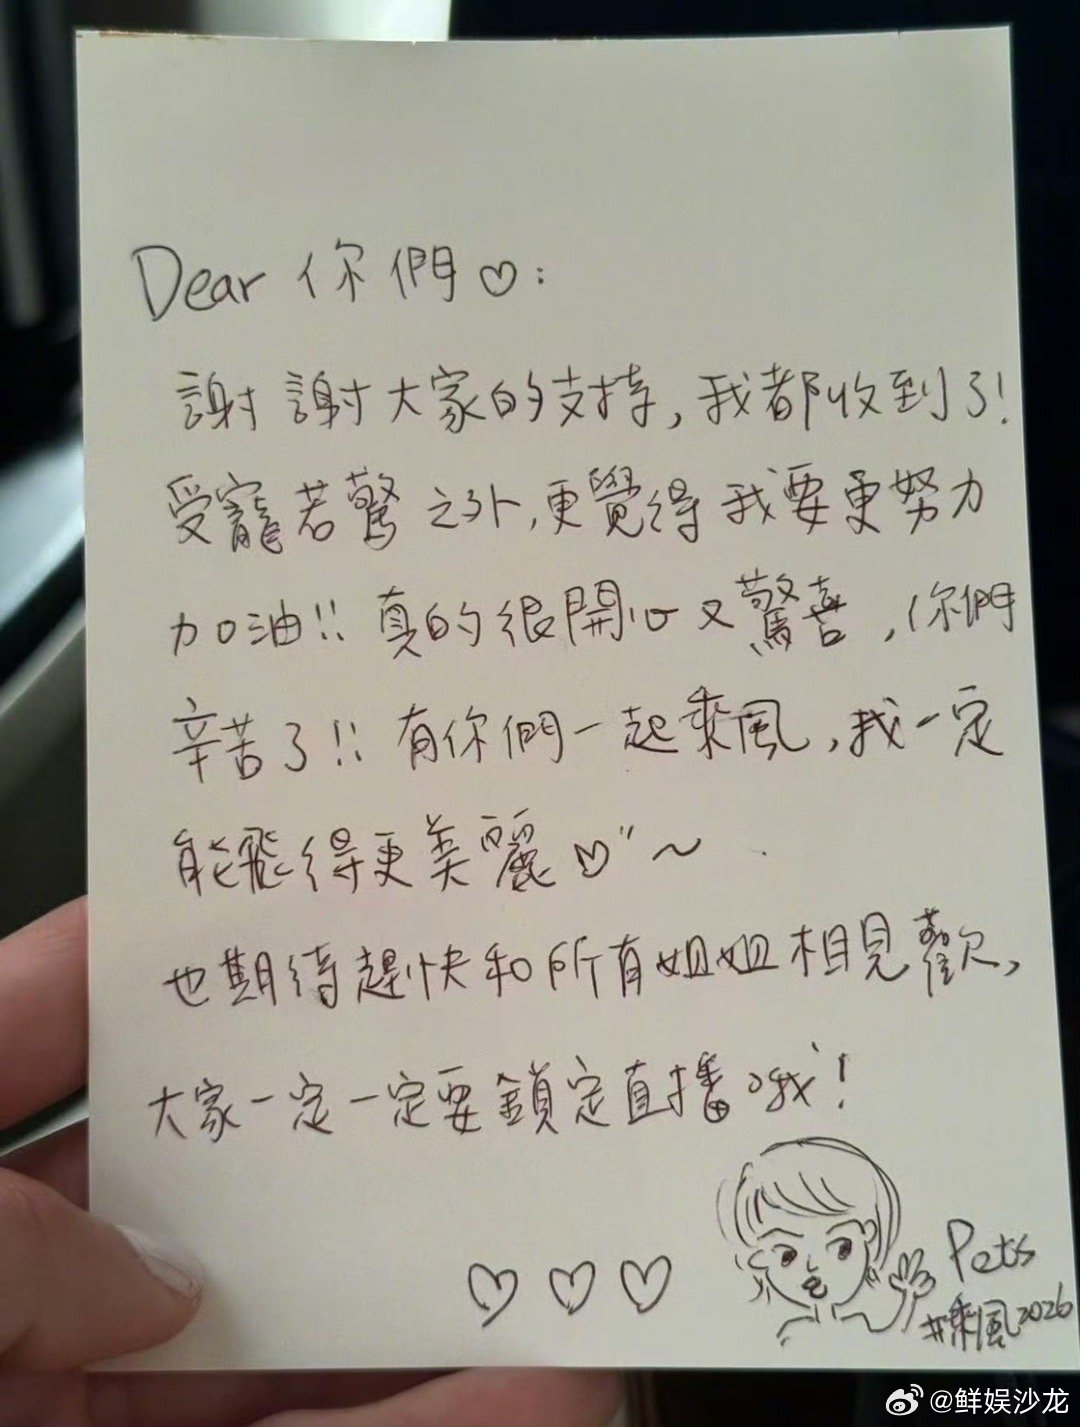 Dear 你們♡:
謝謝大家的支持,我都收到了!
受寵若驚之外,更覺得我要更努力
加油!! 真的很開心又驚喜,你們
辛苦了!! 有你們一起乘風,我一定
能飛得更美麗♡"~
也期待趕快和所有姐姐相見歡,
大家一定一定要鎖定直播哦!
♡♡♡
Pets
#乘風2026
@鲜娱沙龙